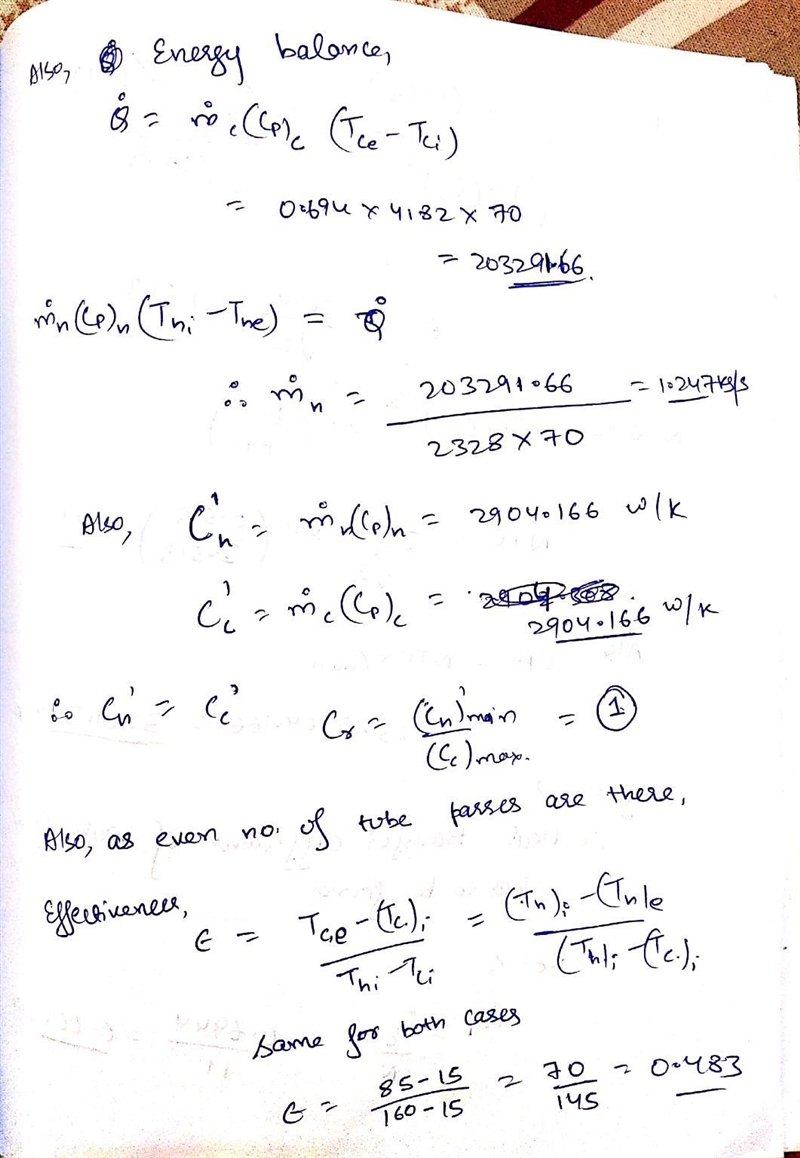 Also, Energy balance,
Q̇ = ṁc(Cp)c (Tce - Tci)
= 0.694 x 4182 x 70
= 203291.66.
ṁh(Cp)h (Thi - The) = Q̇
∴ ṁh = 203291.66 / 2328 x 70 = 1.247 kg/s
Also, C'h = ṁh(Cp)h = 2904.166 w/k
C'c = ṁc(Cp)c = 2904.166 w/k
∴ Ch' = Cc' Cr = (Ch')min / (Cc)max. = 1
Also, as even no. of tube passes are there,
Effectiveness,
ε = Tce - (Tc)i / Thi - Tci = (Th)i - (Th)e / (Th)i - (Tc)i
same for both cases
ε = 85-15 / 160-15 = 70 / 145 = 0.483